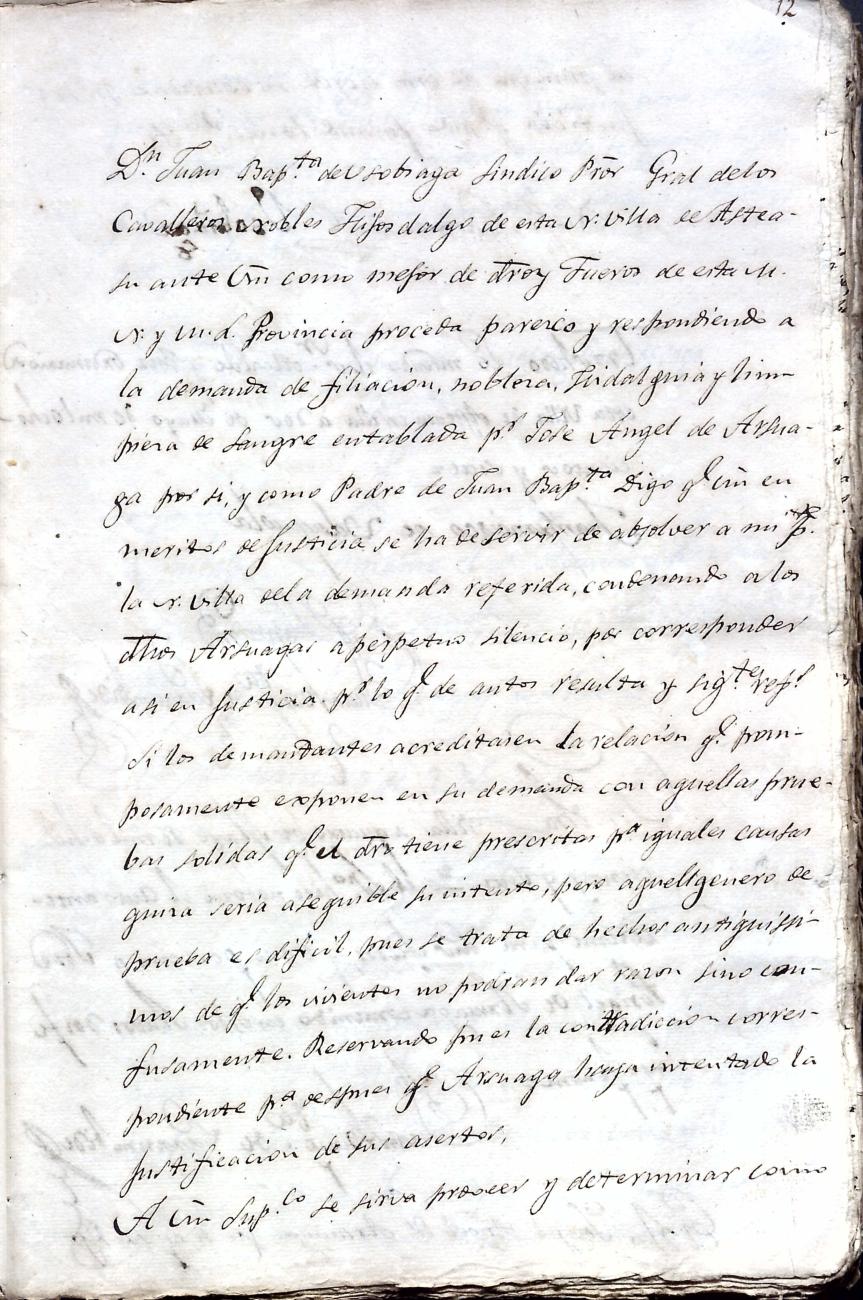 12
Dn. Juan Bapta. de Usobiaga Sindico Pror Gral de los
Cavalleros nobles Hijosdalgo de esta N. Villa de Astea-
su ante Vm como mejor de dro y Fueros de esta M.
N. y M. L. Provincia proceda parezco y respondiendo a
la demanda de filiacion, nobleza, Hidalguia y lim-
pieza de sangre entablada pr. Jose Angel de Arsua-
ga por si, y como Padre de Juan Bapta. Digo q. Vm en
meritos de Justicia se ha de servir de absolver a mi p.
la N. Villa dela demanda referida, condenando a los
dhos Arsuagas a perpetuo silencio, por corresponder
asi en Justicia pr. lo q. de autos resulta y sigte.
Si los demandantes acreditasen la relacion q. pom-
posamente exponen en su demanda con aquellas prue-
bas solidas q. el dro tiene prescritas pa. iguales causas
quiza seria aseguible su intento, pero aquell genero de
prueba es dificil, pues se trata de hechos antiguissi-
mos de q. los vivientes no podran dar razon sino con-
fusamente. Reservando pues la contradiccion corres-
pondiente pa. despues q. Arsuaga haya intentado la
justificacion de sus asertos,
A Vm Supco. se sirva proveer y determinar como